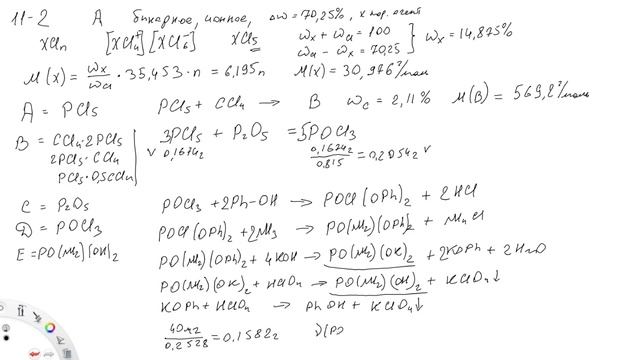 11-2 A бинарное, ионное, Δω = 70,25%, х хор. агент
XCln [XCl4+] [XCl6-] XCl5 ωx + ωCl = 100 ωCl - ωx = 70,25 } ωx = 14,875%
M(X) = ωx/ωCl · 35,453 · n = 6,195n M(X) = 30,976 г/моль
A = PCl5 PCl5 + CCl4 → B ωC = 2,11% M(B) = 569,2 г/моль
B = CCl4·2PCl5 3PCl5 + P2O5 = 5POCl3
2PCl5·CCl4 V 0,1674г 0,1674г/0,815 = 0,2054г V
PCl5·0,5CCl4
C = P2O5 POCl3 + 2Ph-OH → POCl(OPh)2 + 2HCl
D = POCl3 POCl(OPh)2 + 2NH3 → PO(NH2)(OPh)2 + NH4Cl
E = PO(NH2)(OH)2 PO(NH2)(OPh)2 + 4KOH → PO(NH2)(OK)2 + 2KOPh + 2H2O
PO(NH2)(OK)2 + HClO4 → PO(NH2)(OH)2 + KClO4↓
KOPh + HClO4 → PhOH + KClO4↓
40мг/0,2528 = 0,1582г ν(PO